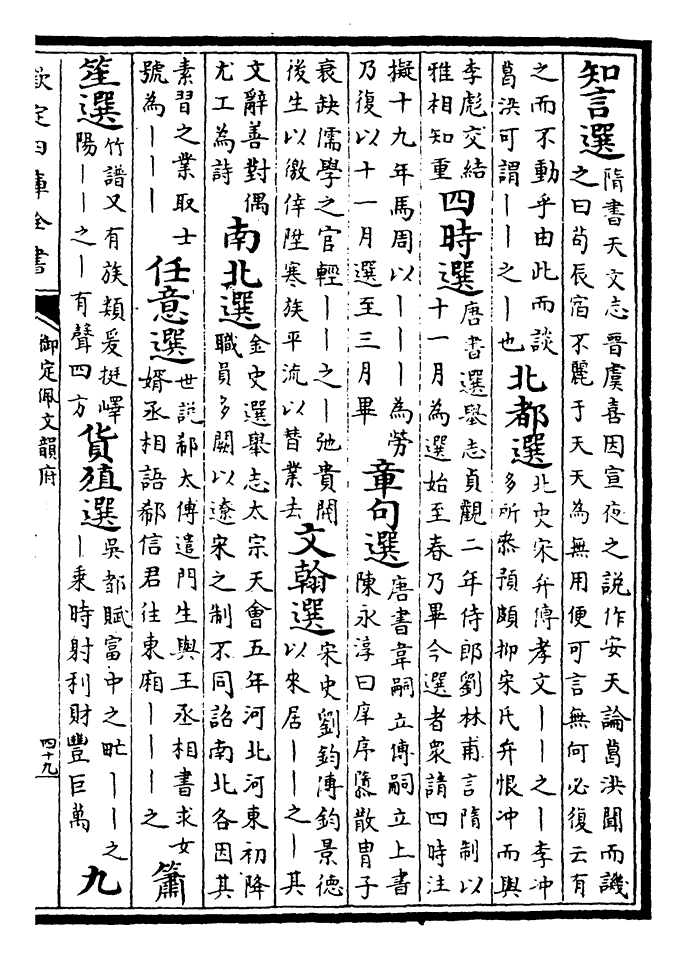 知言選
隋書天文志晉虞喜因宣夜之說作安天論葛洪聞而譏
之曰茍辰宿不麗于天天為無用便可言無何必復云有
之而不動乎由此而談
葛洪可謂丨丨之丨也
北都選
北史宋弁傳孝文丨丨之丨李冲
多所叅預頗抑宋氏弁恨冲而與
李彪交結
雅相知重
四時選
唐書選舉志貞觀二年侍郎劉林甫言隋制以
十一月為選始至春乃畢今選者衆請四時注
擬十九年馬周以丨丨丨為勞
乃復以十一月選至三月畢
章句選
唐書韋嗣立傳嗣立上書
陳永淳曰庠序隳散胄子
衰缺儒學之官輕丨丨之丨弛貴閥
後生以徼倖陞寒族平流以替業去
文翰選
宋史劉鈞傳鈞景德
以來居丨丨之丨其
文辭善對偶
尤工為詩
南北選
金史選舉志太宗天會五年河北河東初降
職員多闕以遼宋之制不同詔南北各因其
素習之業取士
號為丨丨丨
任意選
世說郗太傅遣門生與王丞相書求女
婿丞相語郗信君往東廂丨丨丨之
簫
笙選
竹譜又有族類爰挺嶧
陽丨丨之丨有聲四方
貨殖選
吳都賦富中之甿丨丨之
丨乘時射利財豐巨萬
九
欽定四庫全書
御定佩文韻府
四十九